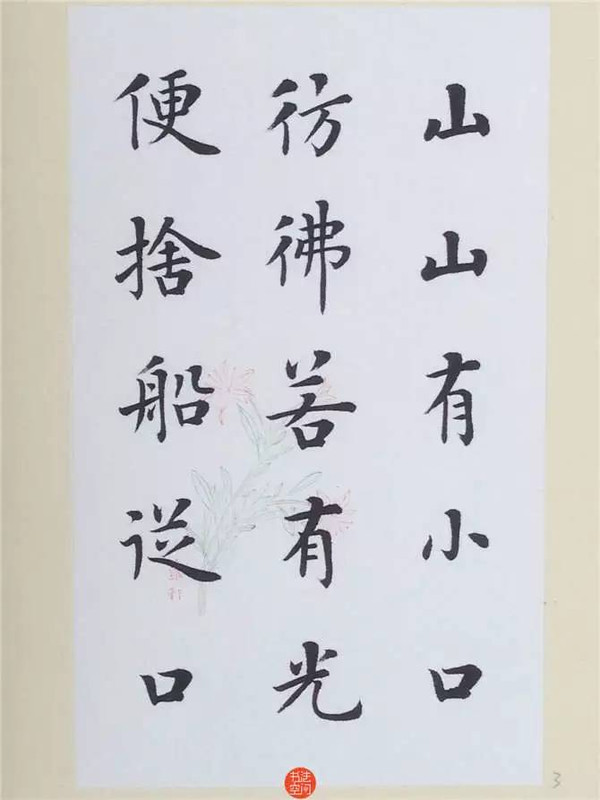 山山有小口
彷彿若有光
便捨船従口
书法
空间
3